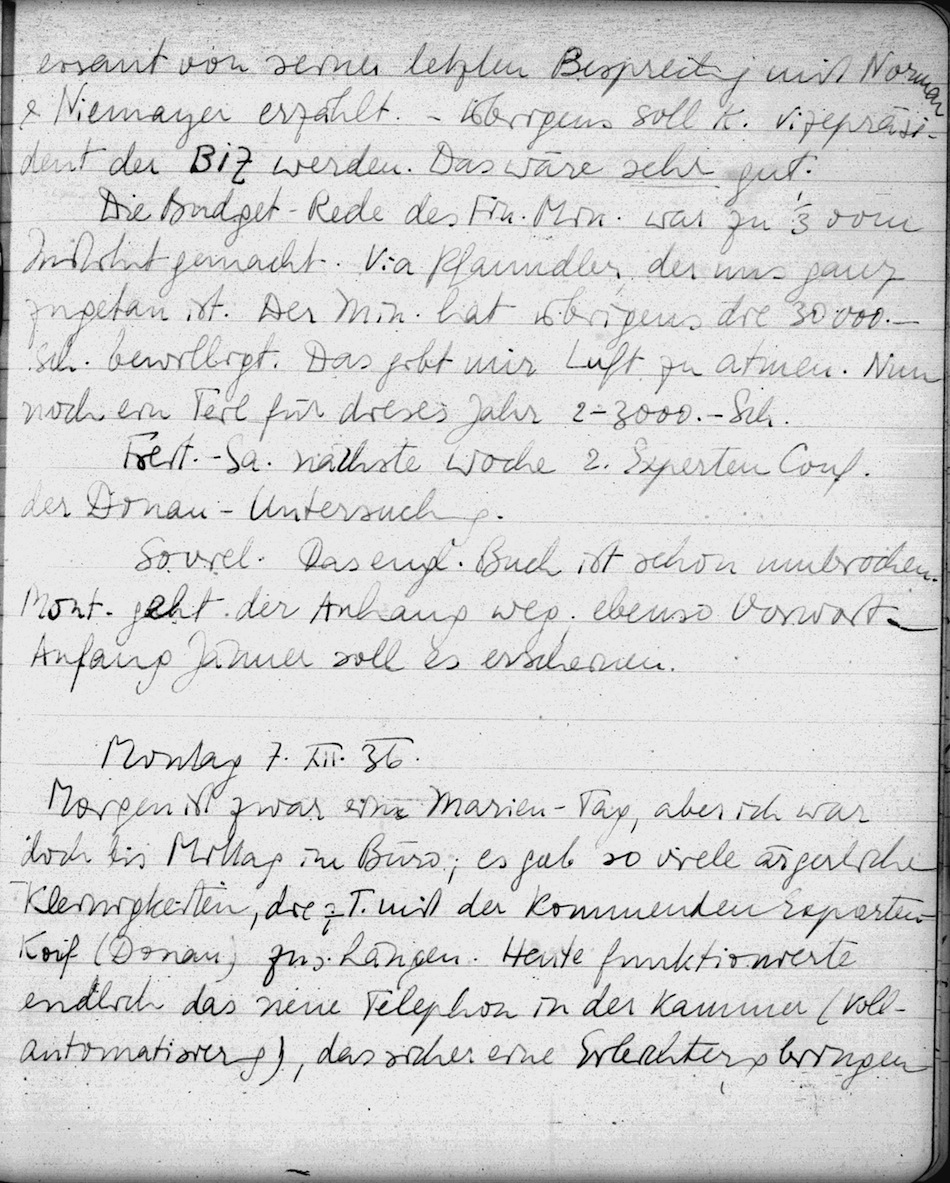 essant von seiner letzten Besprechung mit Norman
& Niemayer erzählt. – Übrigens soll K. Vizepräsi-
dent der BIZ werden. Das wäre sehr gut.
Die Budget-Rede des Fin. Min. war zu ⅓ vom
Institut gemacht. Via Pfaundler, der uns ganz
zugetan ist. Der Min. hat übrigens die 30.000.–
Sch. bewilligt. Das gibt mir Luft zu atmen. Nun
noch ein Teil für dieses Jahr 2–3000.– Sch.
Freit.-Sa. nächste Woche 2. Experten Conf.
der Donau-Untersuchung.
Soviel. Das engl. Buch ist schon umbrochen.
Mont. geht der Anhang weg. ebenso Vorwort.
Anfang Jänner soll es erscheinen.
Montag 7. XII. 36.
Morgen ist zwar ein Marien-Tag, aber ich war
doch bis Mittag im Büro; es gab so viele ärgerliche
Kleinigkeiten, die z. T. mit der kommenden Experten-
Konf (Donau) zus. hängen. Heute funktionierte
endlich das neue Telephon in der Kammer (voll-
automatisierg), das sicher eine Erleichterg bringen